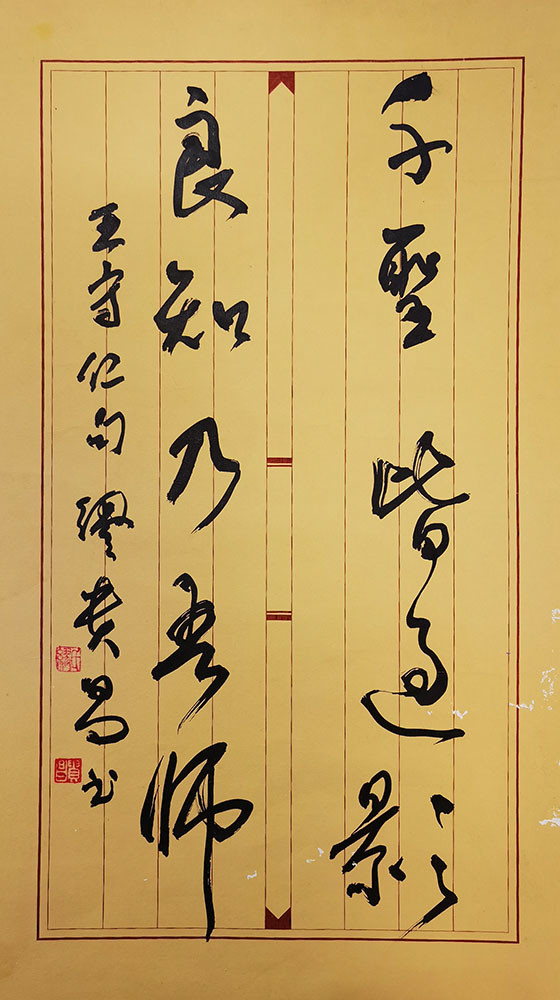 千聖皆過影
良知乃吾師
王守仁句 缪贵昌书